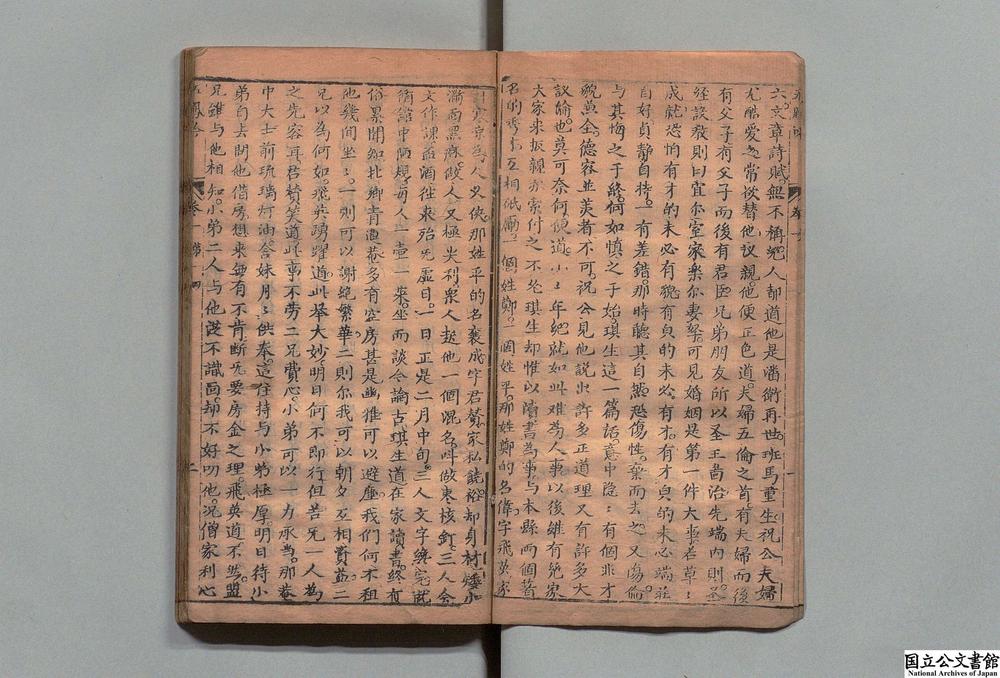 六文章詩賦無不稱絕人都道他是潘衛再世班馬重生祝公夫婦
尤酷愛之常欲替他议親他便正色道夫婦五倫之首有夫婦而後
有父子有父子而後有君臣兄弟朋友所以圣王啚治先端内則圣
经設教則曰宜尔室家樂尔妻孥可見婚姻是第一件大事若草〻
成就恐怕有才的未必有貌有貞的未必有才有才貞的未必端莊
自好貞靜自持一有差錯那時聽其自然忍傷性棄而去之又傷倫
与其悔之于終何如慎之于始琪生這一篇話意中隐〻有個非才
貌兼全德容並美者不可祝公見他說出許多正道理又有許多大
议論也莫可奈何便道小〻年紀就如此难為人事以後雖有宛家
大家來扳親亦索付之不允琪生却惟以讀書為事与本縣両個著
名的秀才互相砥礪一個姓鄭一個姓平那姓鄭的名偉字飛英家
人又俠那姓平的名襄成字君贊家私饒裕却身材矮小
滿面黑麻做人又極尖利眾人起他一個混名叫做枣核釘三人会
文作課盃酒往来殆无虛日一日正是二月中旬三人文字完
中陋規每人一壺一来坐而談今論古琪生道在家讀書終有
俗累聞知北鄉青蓮菴多有空房甚是幽雅可以避塵我們何不租
他幾間坐〻一則可以謝絕繁華二則你我可以朝夕互相資益二
兄以為何如飛英踴躍道此举大妙明日何不即行但苦无一人為
之先容耳君贊笑道此事不勞二兄費心小弟可以一力承當那菴
中大士前琉璃灯油荅妹月〻供奉這住持与小弟極厚明日待小
弟自去問他借房想来無有不肯断无要房金之理飛英道不然盟
兄雖与他相知小弟二人与他從不識面却不好叨他况僧家利心
卷一
第一
二
国立公文書館
National Archives of Japan